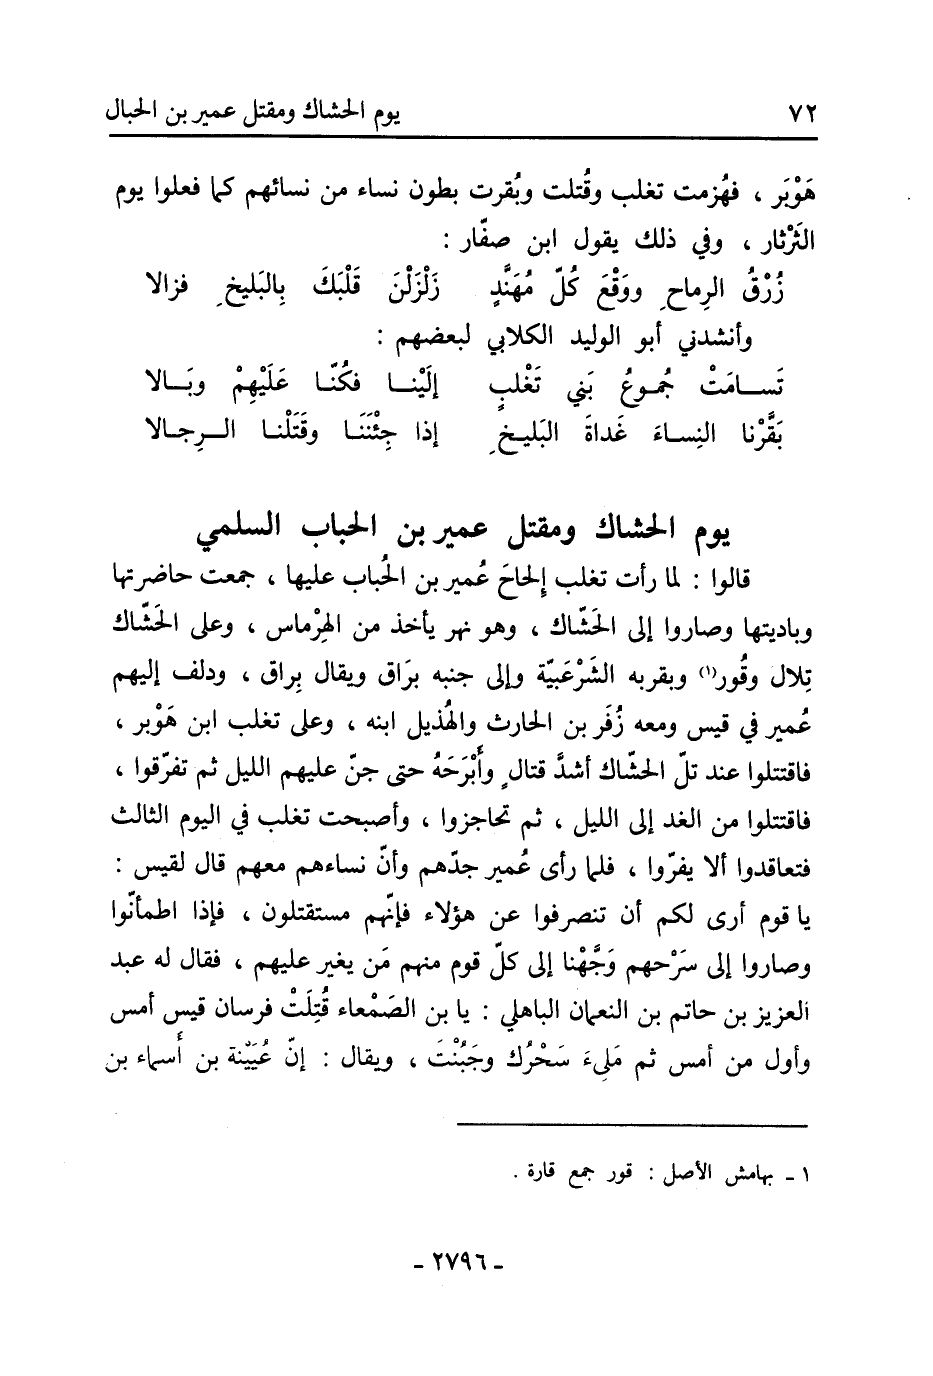 ٧٢ يوم الحشاك ومقتل عمير بن الحبال
هَوْبَر ، فهُزمت تغلب وقُتلت وبُقرت بطون نساء من نسائهم كما فعلوا يوم
الثَرْثار ، وفي ذلك يقول ابن صفّار :
زُرْقُ الرِماحِ ووَقْعَ كُلّ مُهَنَّدٍ زَلْزَلْنَ قَلْبَكَ بِالبَليخِ فزالا
وأنشدني أبو الوليد الكلابي لبعضهم :
تَسامَتْ جُموعُ بَني تَغْلبٍ إلَيْنا فكُنّا عَلَيْهِمْ وبَالا
بَقَّرْنا النِساءَ غَداةَ البَليخِ إذا جِئْنَنَا وقَتَلْنا الرِجالا
يوم الحشاك ومقتل عمير بن الحباب السلمي
قالوا : لما رأت تغلب إلحاحَ عُمير بن الحُباب عليها ، جمعت حاضرتها
وباديتها وصاروا إلى الحَشّاك ، وهو نهر يأخذ من الهِرْماس ، وعلى الحَشّاك
تِلال وقُور(١) وبقربه الشَرْعَبيّة وإلى جنبه بَراق ويقال بِراق ، ودلف إليهم
عُمير في قيس ومعه زُفَر بن الحارث والهُذيل ابنه ، وعلى تغلب ابن هَوْبر ،
فاقتتلوا عند تلّ الحشّاك أشدَّ قتالٍ وأَبْرَحَهُ حتى جنّ عليهم الليل ثم تفرّقوا ،
فاقتتلوا من الغد إلى الليل ، ثم تحاجزوا ، وأصبحت تغلب في اليوم الثالث
فتعاقدوا ألا يفرّوا ، فلما رأى عُمير جدّهم وأنّ نساءهم معهم قال لقيس :
يا قوم أرى لكم أن تنصرفوا عن هؤلاء فإنّهم مستقتلون ، فإذا اطمأنّوا
وصاروا إلى سَرْحهم وَجَّهْنا إلى كلّ قوم منهم مَن يغير عليهم ، فقال له عبد
العزيز بن حاتم بن النعمان الباهلي : يا بن الصَمْعاء قُتِلَتْ فرسان قيس أمس
وأول من أمس ثم مَلِيءَ سَحْرُك وجَبُنْتَ ، ويقال : إنّ عُيَيْنة بن أَسماء بن
١ - بهامش الأصل : قور جمع قارة .
- ٢٧٩٦ -